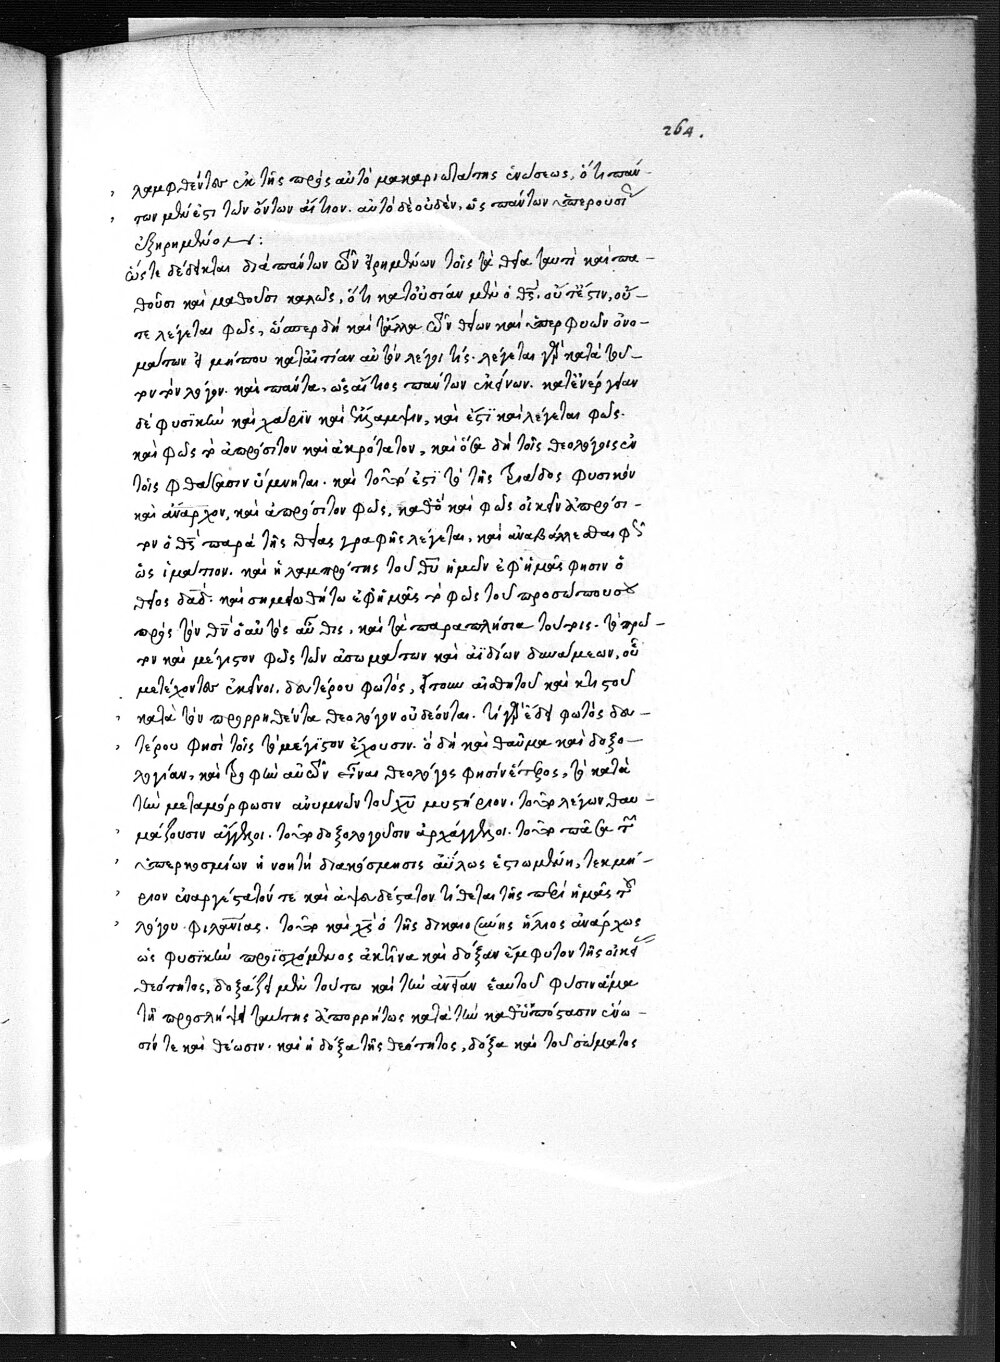 264.
λαμφθέντων ἐκ τῆς πρὸς αὐτὸ μακαριωτάτης ἑνώσεως, ὅτι πάν-
των μέν ἐστι τῶν ὄντων αἴτιον. αὐτὸ δὲ οὐδέν, ὡς πάντων ὑπερουσίως
ἐξῃρημένον:
ὥστε δέδεικται διὰ πάντων τῶν εἰρημένων τοῖς τὰ θεῖα καὶ πα-
θοῦσι καὶ μαθοῦσι καλῶς, ὅτι κατ' οὐσίαν μὲν ὁ θς. οὔτ' ἔστιν, οὔ-
τε λέγεται φῶς, ὥσπερ δὴ καὶ τἄλλα τῶν θείων καὶ ὑπερφυῶν ὀνο-
μάτων εἰ μήπου κατ' αἰτίαν αὐτὸν λέγοι τίς. λέγεται γὰρ κατὰ τοῦ-
τον τὸν λόγον. καὶ πάντα, ὡς αἴτιος πάντων ἐκείνων. κατ' ἐνέργειαν
δὲ φυσικὴν καὶ χάριν καὶ ἔλλαμψιν, καὶ ἔστι καὶ λέγεται φῶς.
καὶ φῶς τὸ ἀπρόσιτον καὶ ἀκρότατον, καὶ ὅσα δὴ τοῖς θεολόγοις ἐν
τοῖς φθάσασιν ὕμνηται. καὶ τοῦτό ἐστι τὸ τῆς τριάδος φυσικὸν
καὶ ἄναρχον, καὶ ἀπρόσιτον φῶς, καθὸ καὶ φῶς οἰκεῖν ἀπρόσι-
τον ὁ θς παρὰ τῆς θείας γραφῆς λέγεται, καὶ ἀναβάλλεσθαι φῶς
ὡς ἱμάτιον. καὶ ἡ λαμπρότης τοῦ θυ ἡμῶν ἐφ' ἡμᾶς φησιν ὁ
θεῖος δαδ: καὶ σημειωθήτω ἐφ' ἡμᾶς τὸ φῶς τοῦ προσώπου σου
πρὸς τὸν θν ὁ αὐτὸς αὖθις, καὶ τὰ παραπλήσια τούτοις. τὸ πρῶ-
τον καὶ μέγιστον φῶς τῶν ἀσωμάτων καὶ ἀϊδίων δυνάμεων, οὗ
μετέχοντες ἐκεῖνοι. δευτέρου φωτός, ἤτουν αἰσθητοῦ καὶ κτιστοῦ
κατὰ τὸν προρρηθέντα θεολόγον οὐ δέονται. τί γὰρ ἔδει φωτὸς δευ-
τέρου φησὶ τοῖς τὸ μέγιστον ἔχουσιν. ὃ δὴ καὶ θαῦμα καὶ δοξο-
λογίαν, καὶ τροφὴν αὐτῶν εἶναι θεολόγος φησὶν ἕτερος, τὸ κατὰ
τὴν μεταμόρφωσιν ἀνυμνῶν τοῦ χυ μυστήριον. τοῦτο λέγων θαυ-
μάζουσιν ἄγγελοι. τοῦτο δοξολογοῦσιν ἀρχάγγελοι. τοῦτο πᾶσα τῶν
ὑπερκοσμίων ἡ νοητὴ διακόσμησις ἀΰλως ἑστιωμένη, τεκμή-
ριον ἐναργέστατόν τε καὶ ἀψευδέστατον τίθεται τῆς περὶ ἡμᾶς τοῦ
λόγου φιλανίας. τοῦτο καὶ χς ὁ τῆς δικαιοσύνης ἥλιος ἀνάρχως
ὡς φυσικὴν προϊσχόμενος ἀκτῖνα καὶ δόξαν ἔμφυτον τῆς οἰκείας
θεότητος, δοξάζει μὲν τούτῳ καὶ τὴν ἀνίαν ἑαυτοῦ φύσιν ἅμα
τῇ προσλήψει ταύτης ἀπορρήτως κατὰ τὴν καθ' ὑπόστασιν ἕνω-
σίν τε καὶ θέωσιν. καὶ ἡ δόξα τῆς θεότητος, δόξα καὶ τοῦ σώματος